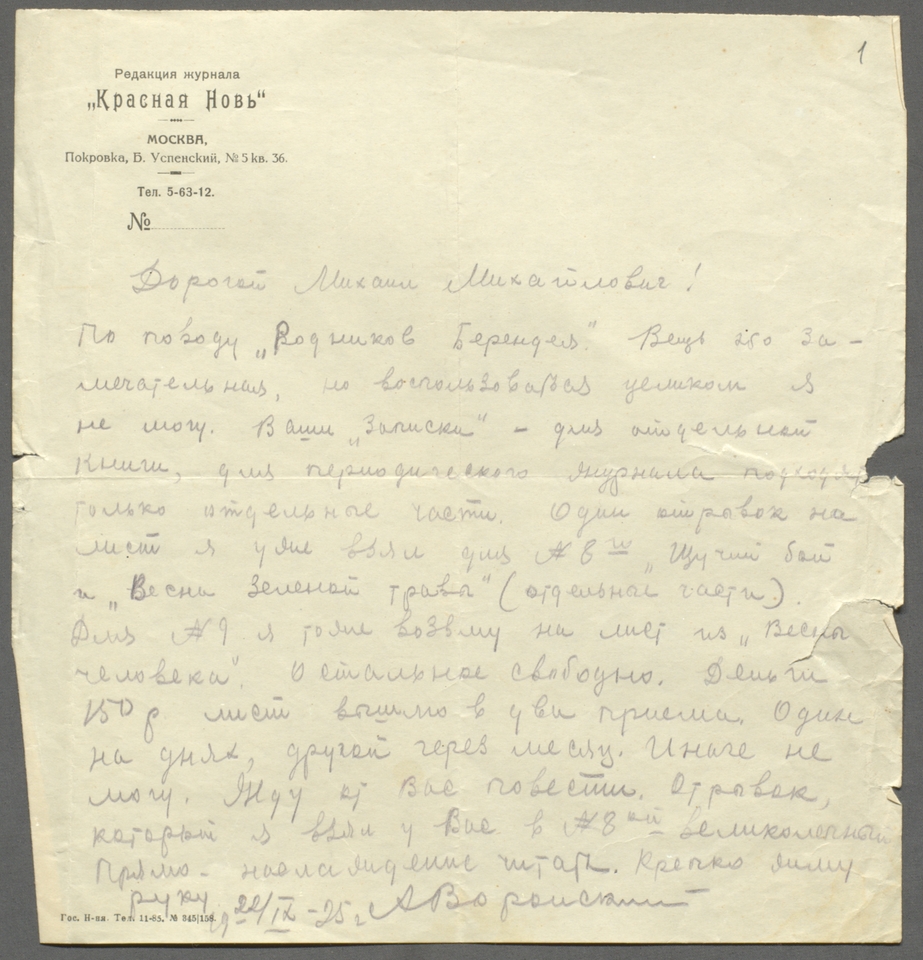 1
Редакция журнала
„Красная Новь“
МОСКВА,
Покровка, Б. Успенский, № 5 кв. 36.
Тел. 5-63-12.
№
Дорогой Михаил Михайлович!
По поводу „Родников Берендея“. Вещь это за-
мечательная, но воспользоваться целиком я
не могу. Ваши „Записки“ – для отдельной
книги, для периодического журнала подходят
только отдельные части. Один отрывок на
лист я уже взял для № 8 „Щучий бой
и „Весна зеленой травы“ (отдельные части).
Для № 9 я тоже возьму на лист из „Весны
человека“. Остальное свободно. Деньги
150 р лист вышлю в два приема. Один
на днях, другой через месяц. Иначе не
могу. Жду от Вас повести. Отрывок,
который я взял у Вас в № 8ой великолепный
Прямо - наслаждение читать. Крепко жму
руку
22/IX –25 г. АВоронский
Гос. Н-ня. Тел. 11-85. № 345|158.